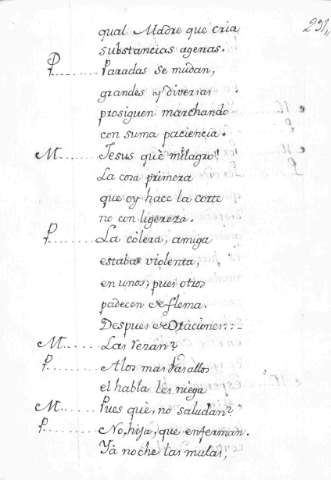 qual Madre que cria
substancias agenas.
P......... Paradas se mudan,
grandes y diversas
prosiguen marchando
con suma paciencia.
M......... Jesus què milagro!
La cosa primera
que oy hace la corte
no con ligereza.
P......... La còlera, amiga
estaba violenta,
en unos, pues otros
padecen de flema.
Despues de Estaciones...
M......... Las rezan?
P......... A los mas Parallos
el habla les niega
M......... Pues què, no saludan?
P......... No, hija, que enferman.
Yà noche las mulas,